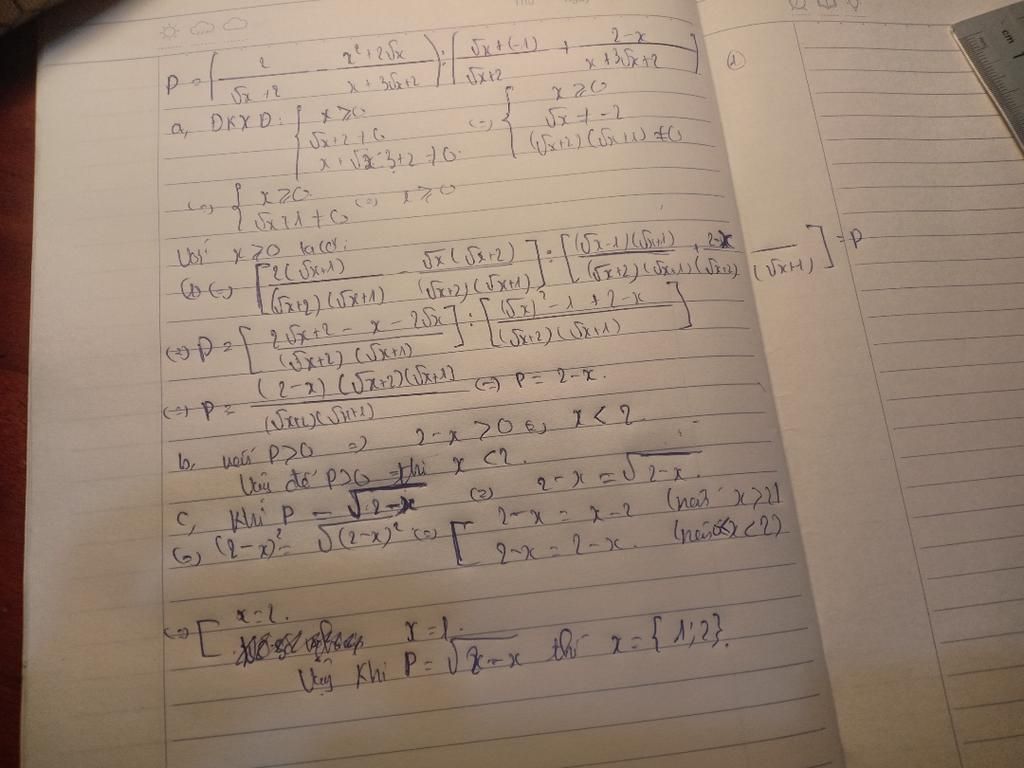 P = [ 2/(√x+2) - (x²+2√x)/(x+3√x+2) ] : [ (√x+(-1))/(√x+2) + (2-x)/(x+3√x+2) ] (1)
a, ĐKXĐ: { x ≥ 0 ; √x+2 ≠ 0 ; x+√x·3+2 ≠ 0 (=) { x ≥ 0 ; √x ≠ -2 ; (√x+2)(√x+1) ≠ 0
(=) { x ≥ 0 ; √x+1 ≠ 0 (=) x ≥ 0
Với x ≥ 0 ta có:
(1) (=) [ 2(√x+1)/((√x+2)(√x+1)) - √x(√x+2)/((√x+2)(√x+1)) ] : [ (√x-1)(√x+1)/((√x+2)(√x+1)) + (2-x)/((√x+2)(√x+1)) ] = P
(=) P = [ (2√x+2-x-2√x)/((√x+2)(√x+1)) ] : [ ((√x)²-1+2-x)/((√x+2)(√x+1)) ]
(=) P = (2-x)(√x+2)(√x+1)/((√x+2)(√x+1)) (=) P = 2-x.
b, với P>0 =) 2-x > 0 (=) x < 2
Vậy để P>0 thì x < 2.
c, Khi P = √2-x (=) 2-x = √2-x.
(=) (2-x)² = √(2-x)² (=) [ 2-x = x-2 (nếu x ≥ 2) ; 2-x = 2-x. (nếu x < 2)
(=) [ x=2. ; x=1.
Vậy khi P = √2-x thì x = {1;2}.
cm